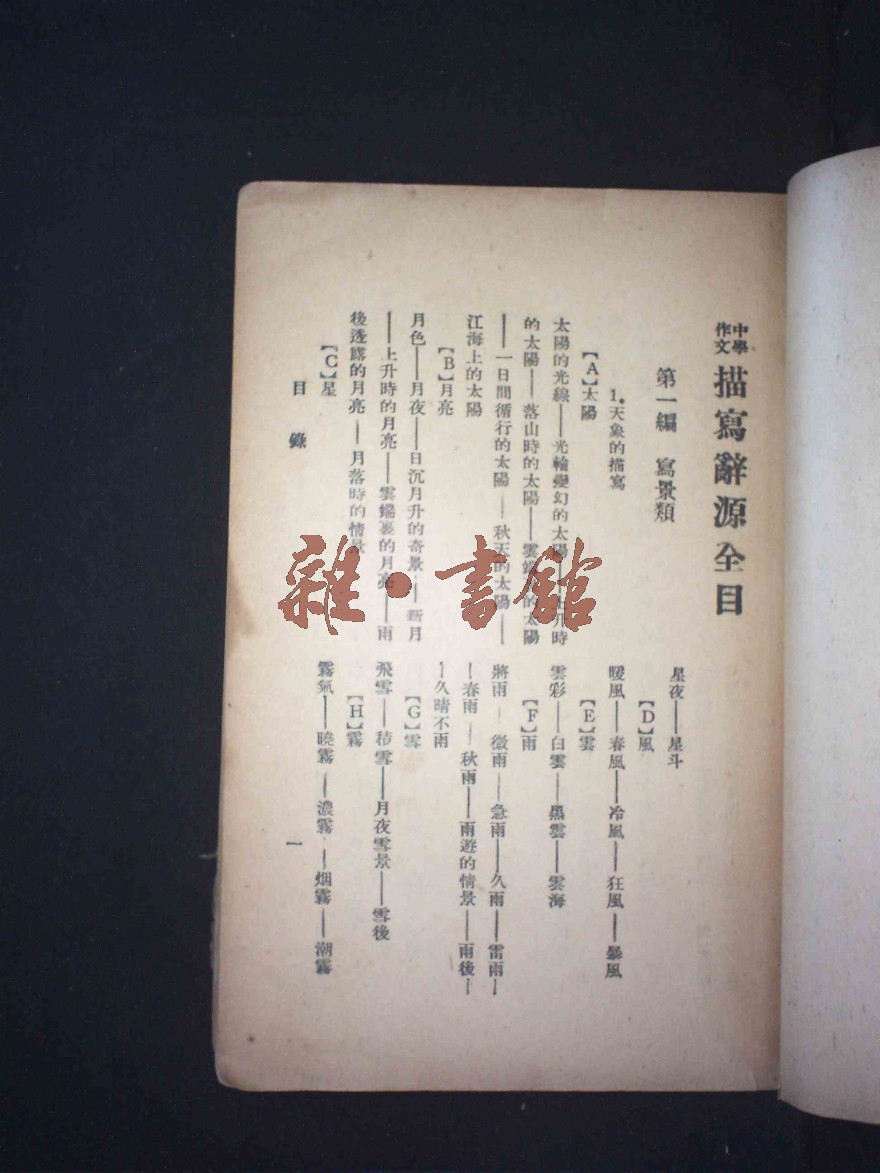 中學作文 描寫辭源全目
第一編　寫景類
1.天象的描寫
【A】太陽
太陽的光線——光輪變幻的太陽——上升時
的太陽——落山時的太陽——雲 的太陽
——一日間循行的太陽——秋天的太陽——
江海上的太陽
【B】月亮
月色——月夜——日沉月升的奇景——新月
——上升時的月亮——雲端裏的月亮——雨
後透露的月亮——月落時的情景
【C】星
星夜——星斗
【D】風
暖風——春風——冷風——狂風——暴風
【E】雲
雲彩——白雲——黑雲——雲海
【F】雨
將雨——微雨——急雨——久雨——雷雨—
—春雨——秋雨——雨遊的情景——雨後—
—久晴不雨
【G】雪
飛雪——積雪——月夜雪景——雪後
【H】霧
霧氣——曉霧——濃霧——烟霧——潮霧
目錄
一
雜·書館